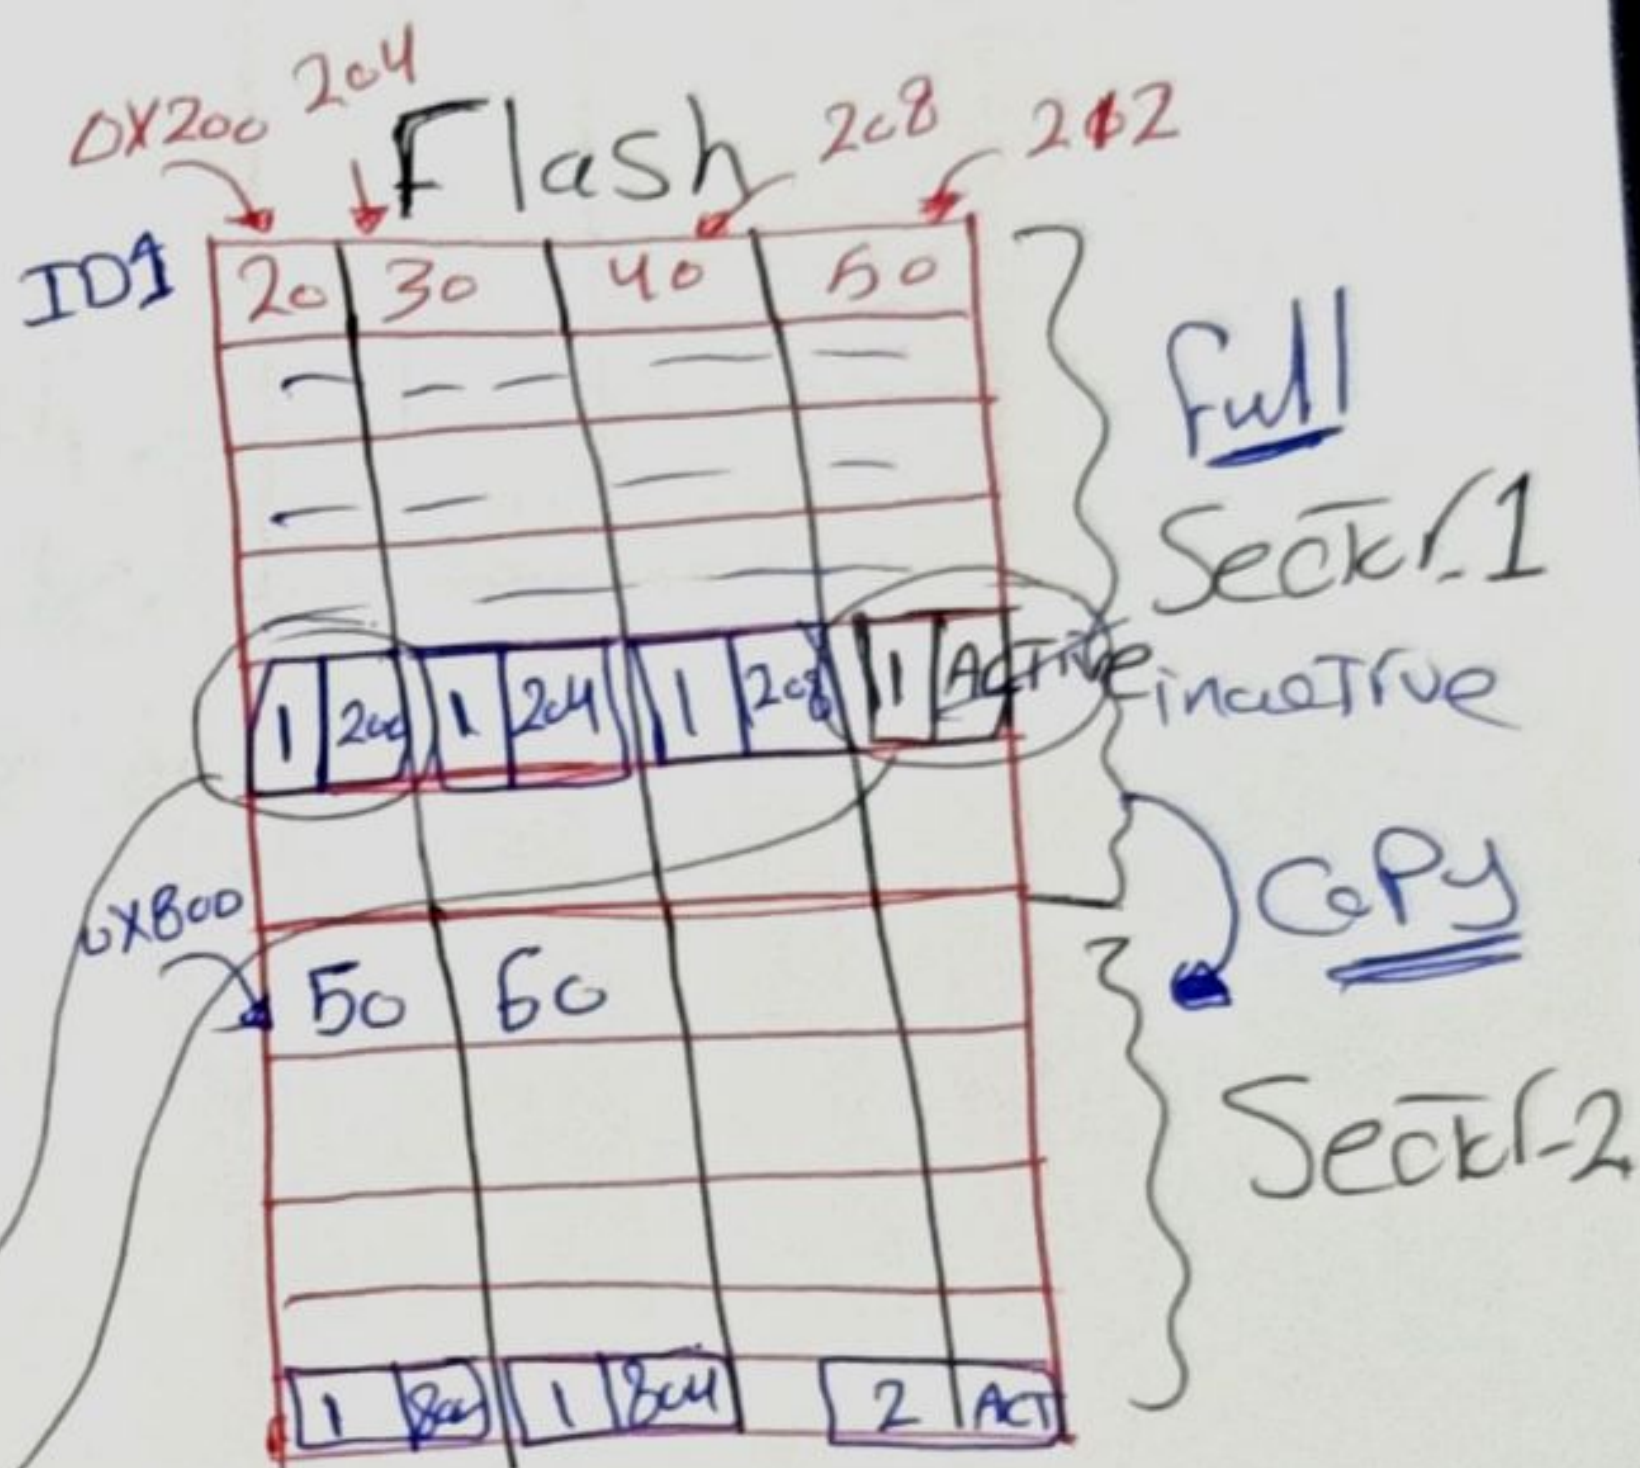 0X200 204 208 212
Flash
ID1 20 30 40 50
Full
Sector.1
1 200 1 204 1 208 1 Active inactive
0X800
Copy
50 60
Sector-2
1 800 1 804 2 ACT